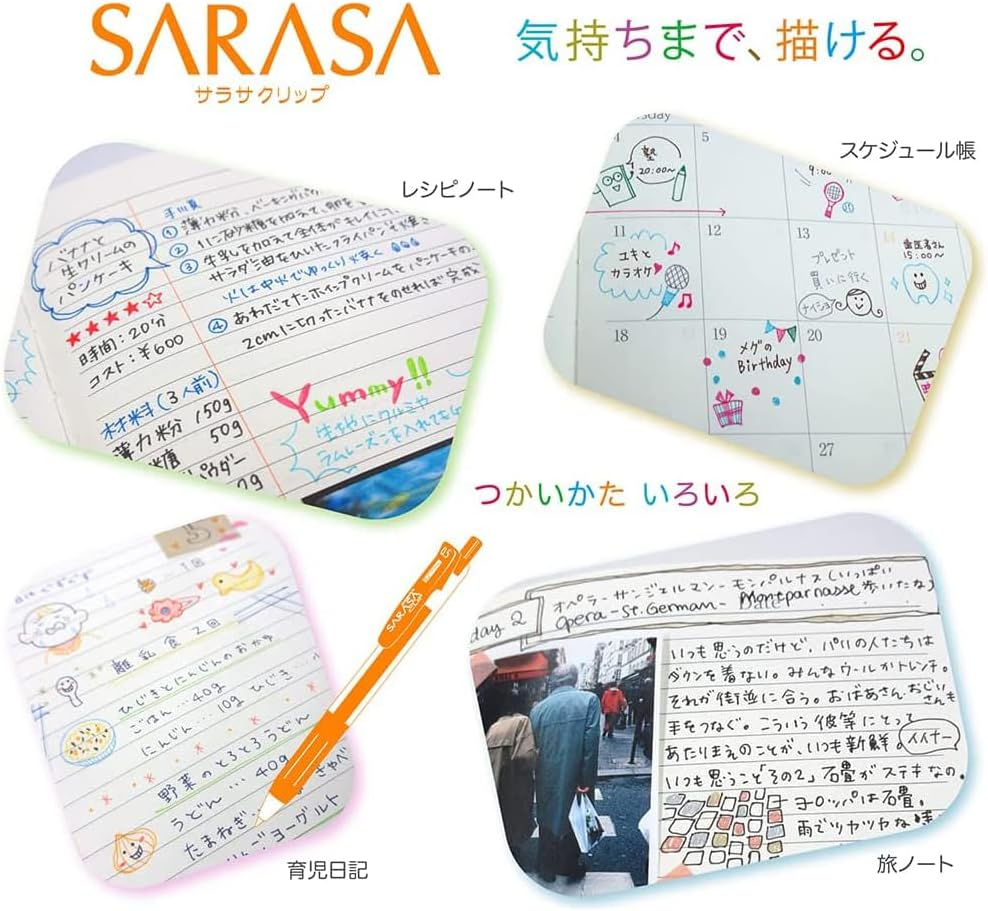 SARASA
サラサクリップ
気持ちまで、描ける。
レシピノート
バナナと
生クリームの
パンケーキ
★★★★☆
時間:20分
コスト:¥600
材料(3人前)
薄力粉 150g
糖 50g
パウダー
手順
① 薄力粉、ベーキングパウ
②
③ 牛乳を加えて全体がキレイに
サラダ油をひいたフライパン
火は中火でゆっくり焼く
④ あわだてたホイップクリームをパンケーキの
2cmに切ったバナナをのせれば完成
Yummy!!
生地にクルミや
ラムレーズンを入れても
スケジュール帳
sday
4
5
塾
20:00~
9:00
11
ユキと
カラオケ
12
13
プレゼント
買いに行く
ナイショ
14
歯医者さん
15:00~
18
19
メグの
Birthday
20
21
27
つかいかた いろいろ
1回
離乳食2回
ひじきとにんじんのおかゆ
ごはん…40g ひじき
にんじん…10g
野菜のとろとろうどん
うどん…40g
たまねぎ
ヨーグルト
SARASA
0.5
育児日記
day 2
オペラーサンジェルマンーモンパルナス(いっぱい
歩いたな)
Opera-St.German- Montparnasse
いつも思うのだけど、パリの人たちは
ダウンを着ない。みんなウールかトレンチ。
それが街並に合う。おばあさんおじいさんも
手をつなぐ。こういう彼等にとって
あたりまえのことが、いつも新鮮。イイナー
いつも思うこと「その2」石畳がステキなの。
ヨーロッパは石畳。
雨でツヤツヤな
旅ノート